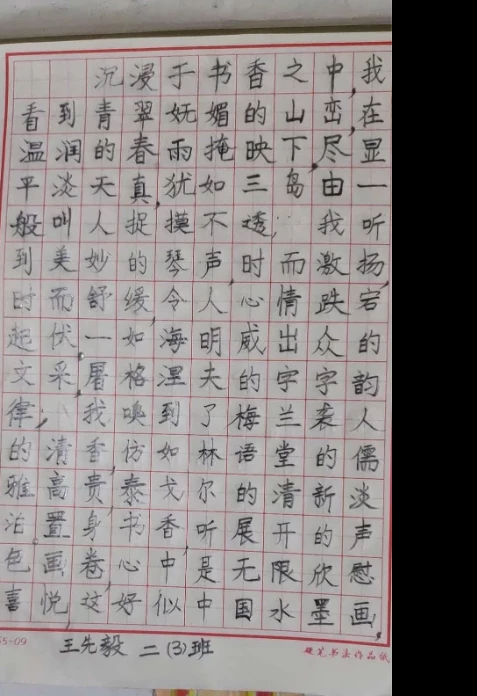 沉浸于书香之中,我
看到青翠妩媚的山峦,在
温润的春雨掩映下,尽显
平淡天真,犹如三岛由一
般叫人捉摸不透; 我听
到美妙的琴声,时而激扬,
时而舒缓,令人心情跌宕
起伏,一如海明威出众的
文采,屠格涅夫的字字韵
律; 我嗅到了梅兰袭人
的清香,仿如林语堂的儒
雅高贵,泰戈尔的清新淡
泊。置身书香,听展开的声
色画卷,心中是无限欣慰
喜悦,这好似中国水墨画,
王先毅 二(3)班
硬笔书法作品纸